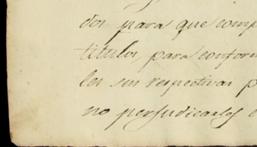 dos para que comp
titulos para conform
los sin respectivas p
no perjudicarlos